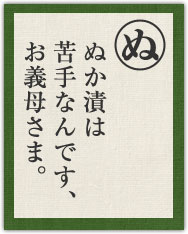 ぬ
ぬか漬は
苦手なんです、
お義母さま。